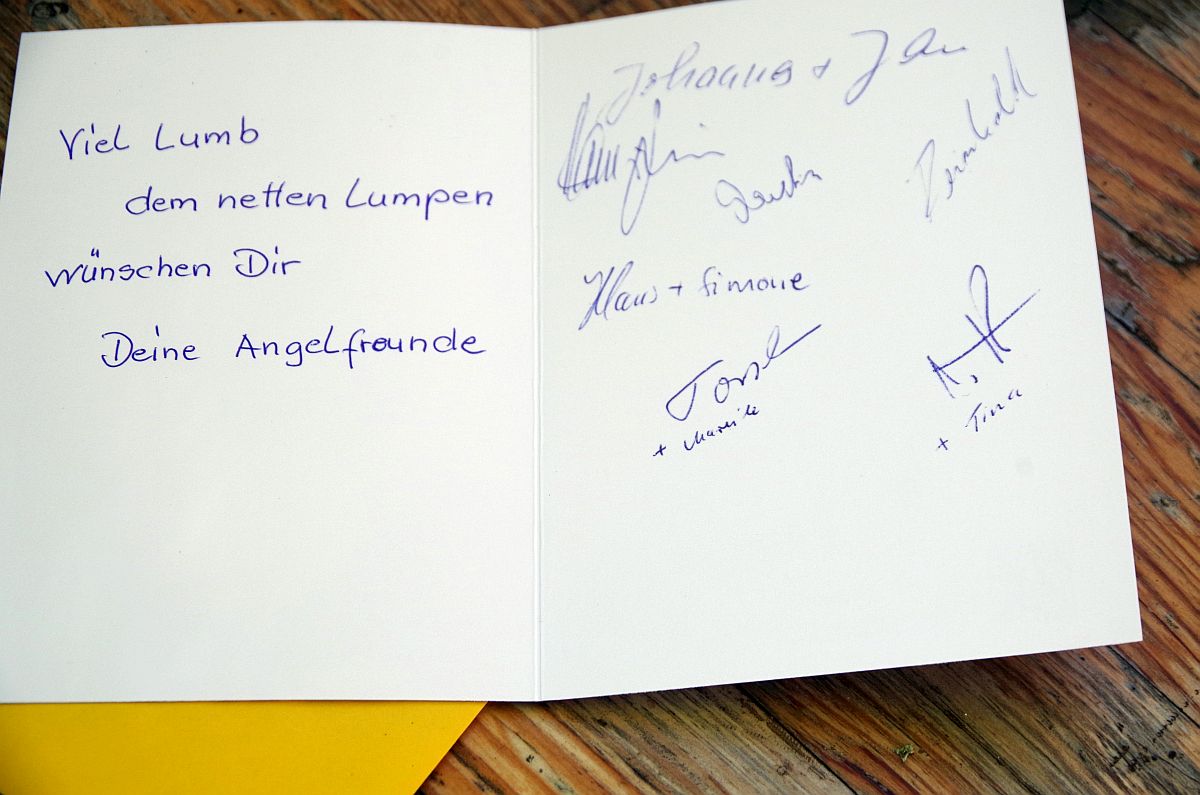 Viel Lumb
dem netten Lumpen
wünschen Dir
Deine Angelfreunde
Johannes + Jan
Klaus + Simone
Torsten
+ Mareike
+ Tina